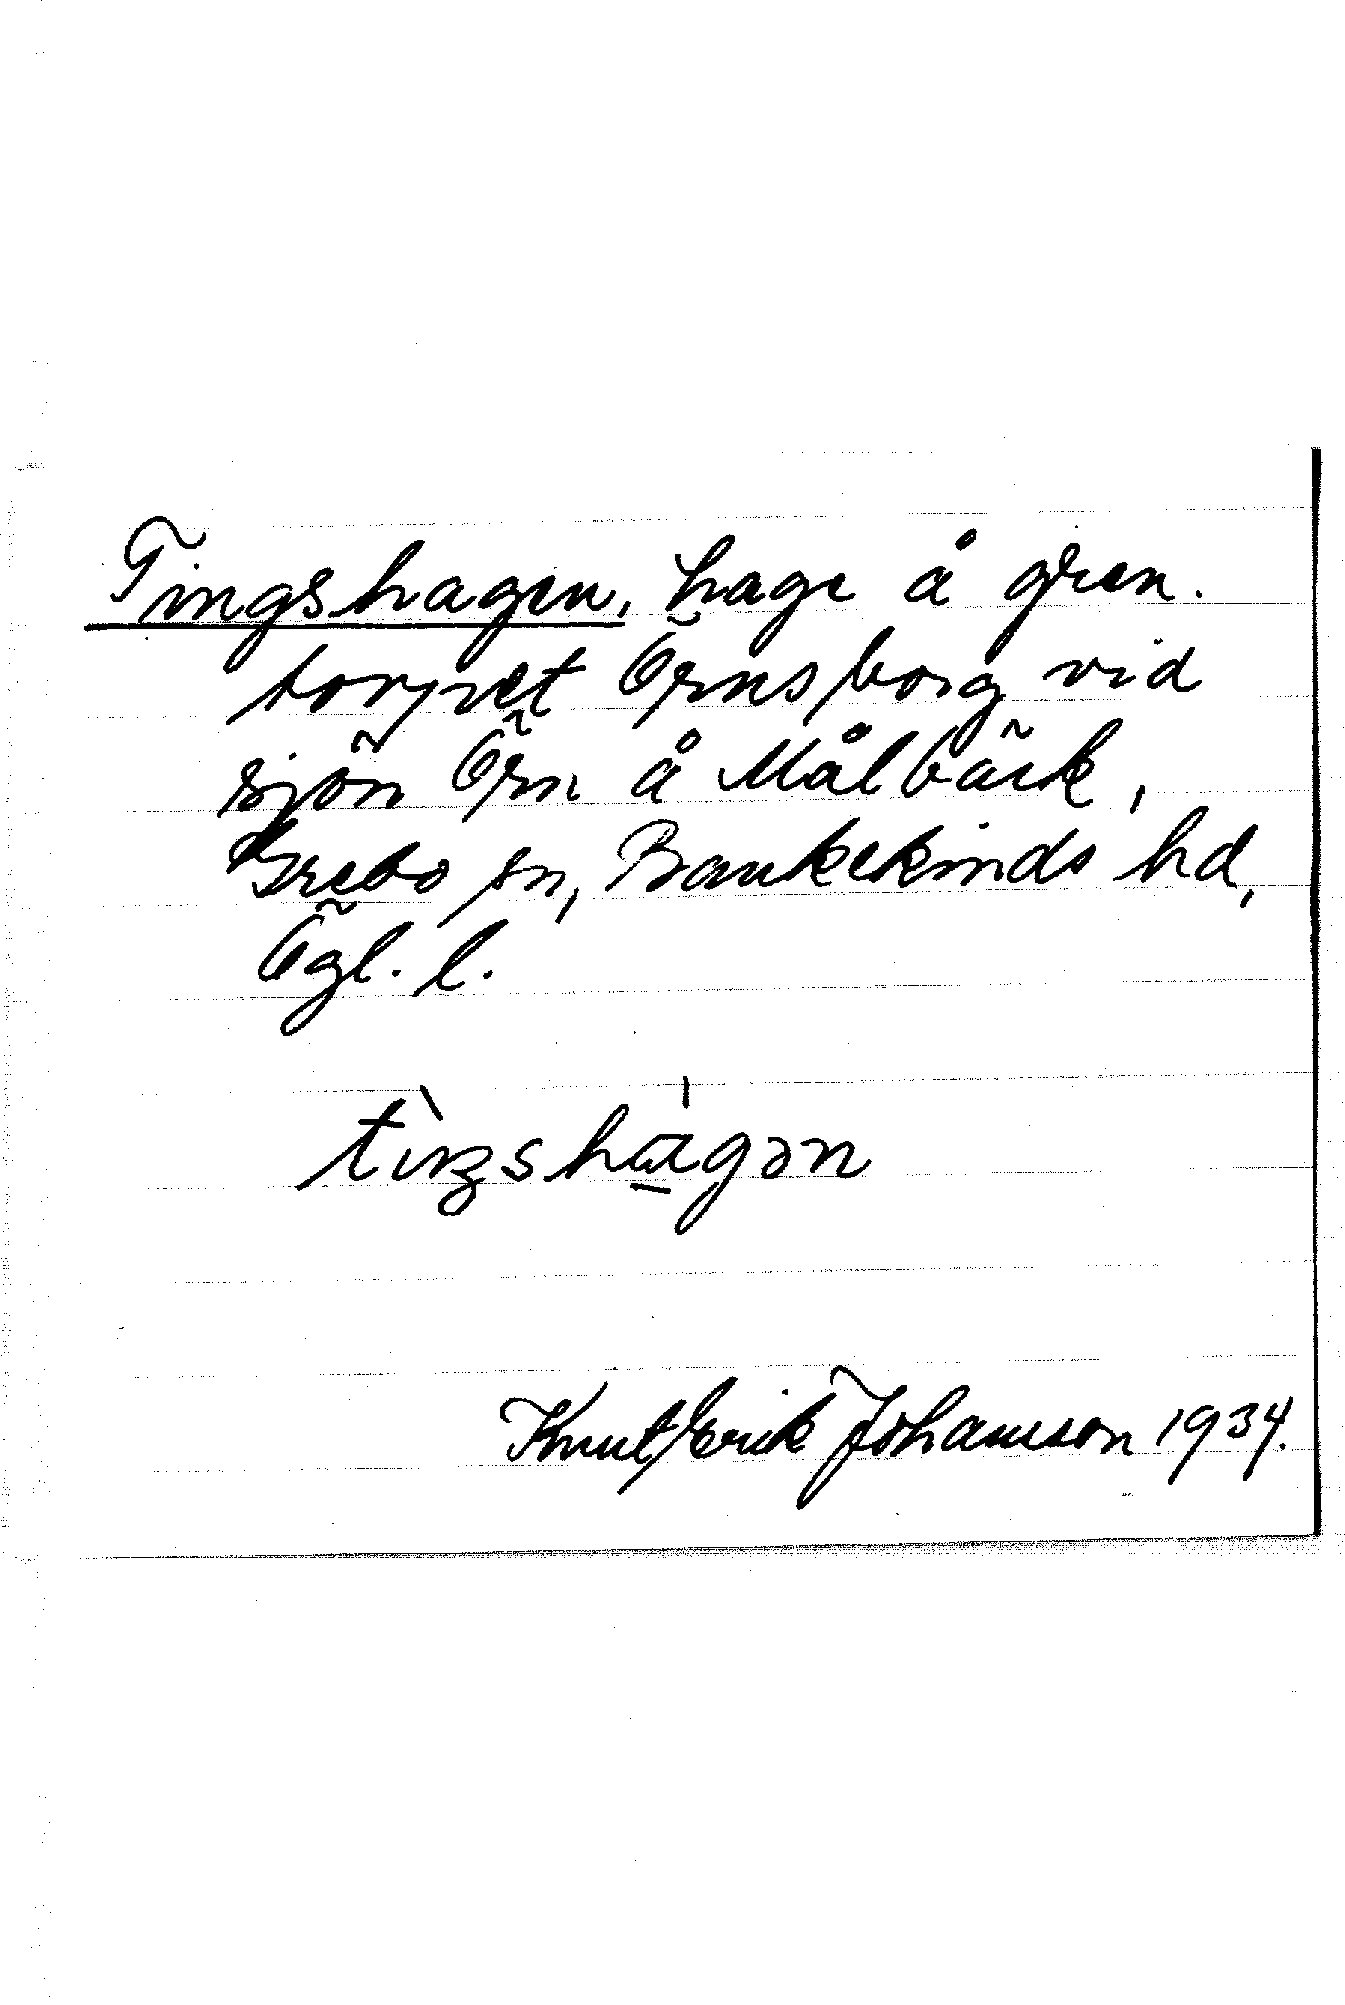 Tingshagen, hage å gren.
torpet Örnsborg vid
sjön Örn å Målbäck,
Grebo sn, Bankekinds hd,
Ögl. l.
tìŋsha̲gən
Knut Erik Johansson 1934.